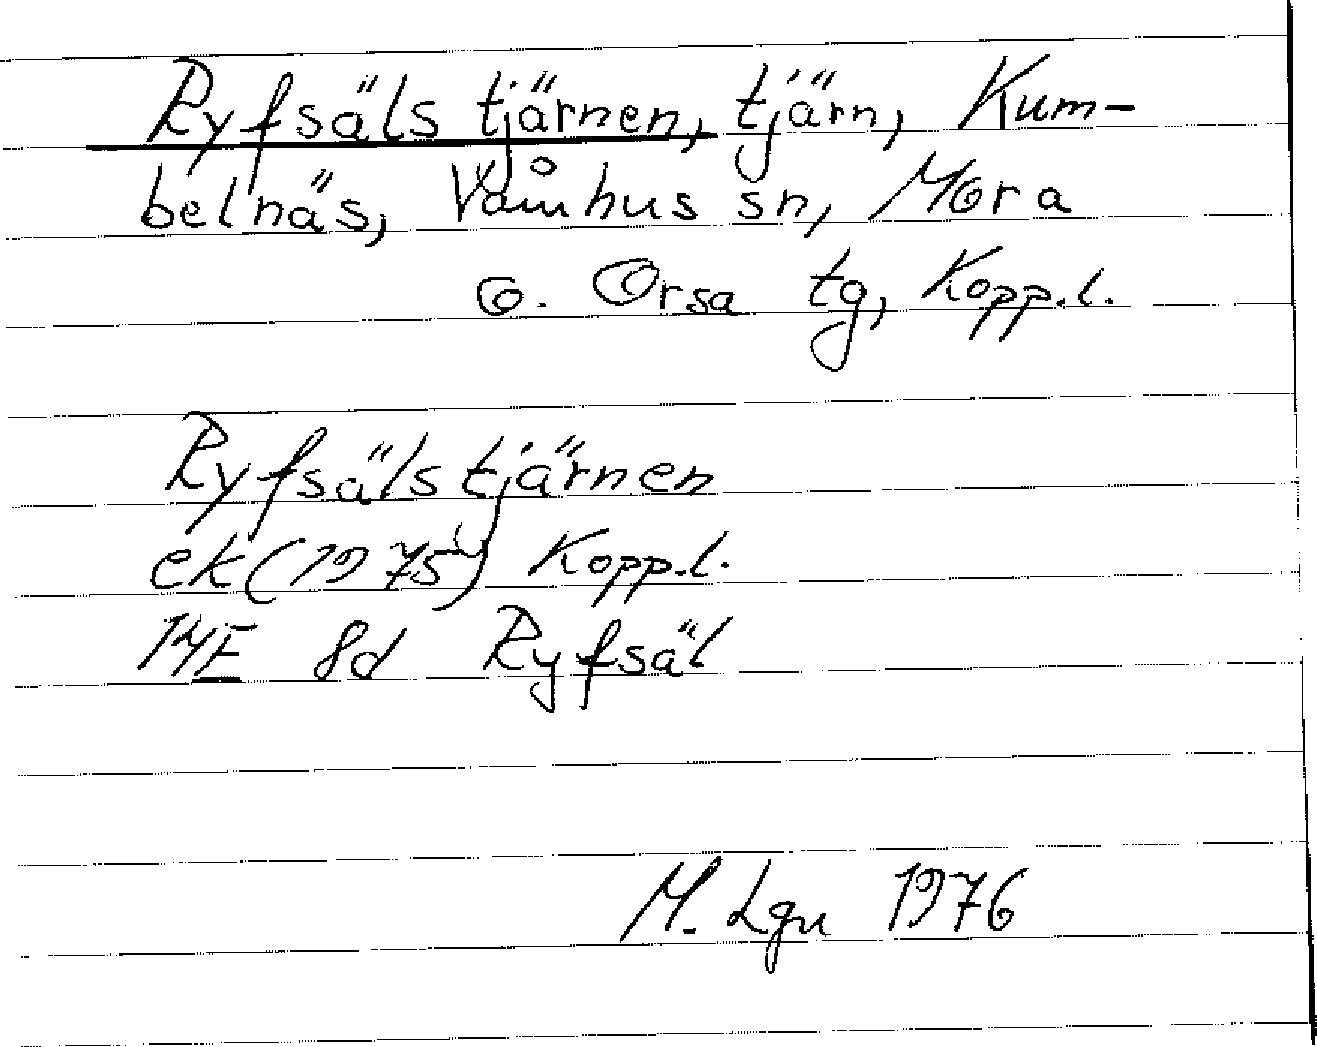 Ryfsäls tjärnen, tjärn, Kum-
belnäs, Våmhus sn, Mora
o. Orsa tg, Kopp.l.
Ryfsälstjärnen
ek (1975) Kopp.l.
14E 8d Ryfsäl
M. Lgn 1976